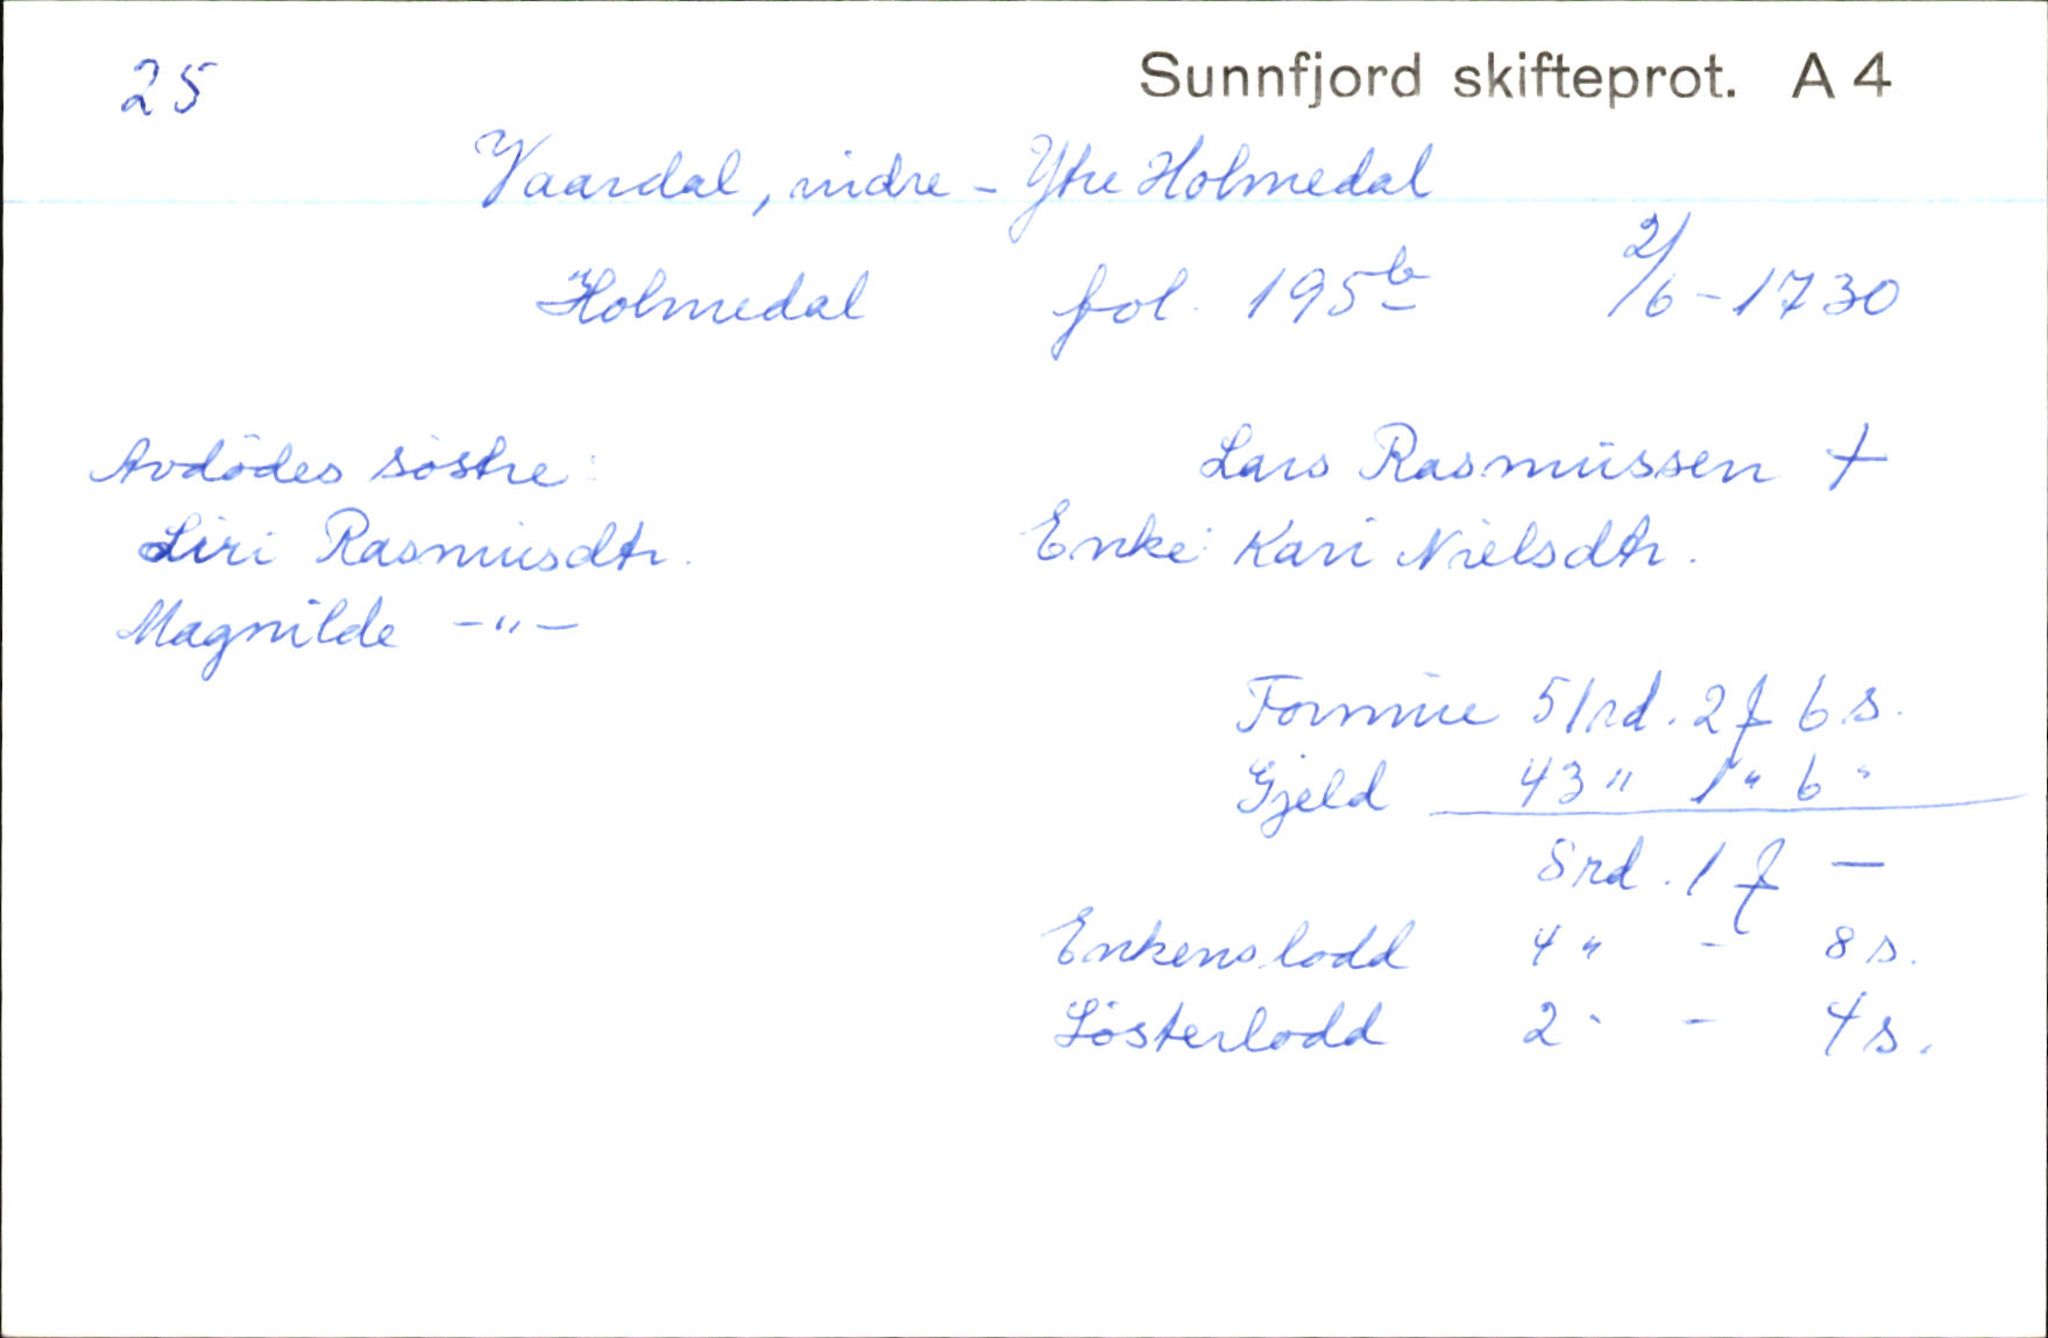 25 Sunnfjord skifteprot. A 4
Vaardal, indre - Ytre Holmedal
Holmedal fol. 195b 2/6-1730
Avdödes söstre: Lars Rasmussen +
Siri Rasmusdtr. Enke: Kari Nielsdtr.
Magnilde -"-
Formue 51rd. 2 f 6 s.
Gjeld 43 " 1 " 6 "
8rd. 1 f —
Enkens lodd 4 " - 8 s.
Lösterlodd 2 " - 4 s.